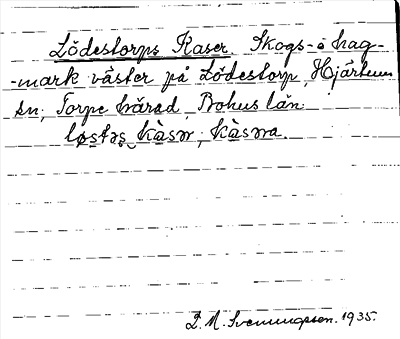 Lödestorps Kaser. Skogs- o hag-
-mark väster på Lödestorp, Hjärtum
sn, Torpe härad, Bohus län.
løstəs kàsər, kàsəra.
D. M. Svenungsson. 1935.